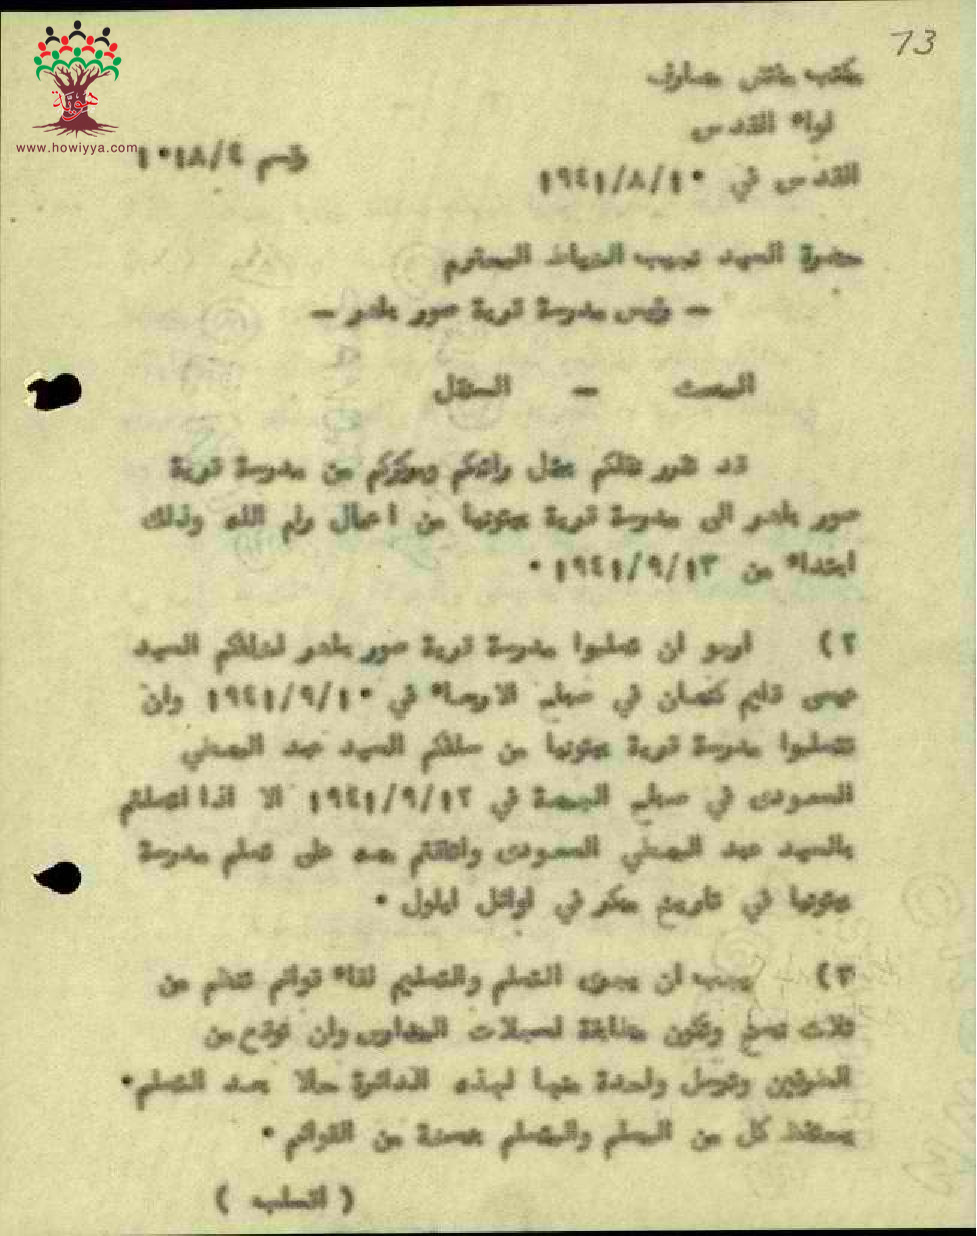 73
هوية
www.howiyya.com
مكتب مفتش معارف
لواء القدس
القدس في ١٩٤١/٨/١٠
رقم ١٠١٨/٤
حضرة السيد نجيب الخياط المحترم
— رئيس مدرسة قرية صور باهر —
البحث — التنقل
قد تقرر نقلكم بمثل راتبكم ومركزكم من مدرسة قرية
صور باهر الى مدرسة قرية بيتونيا من اعمال رام الله وذلك
ابتداء من ١٩٤١/٩/١٣ ٠
٢) ارجو ان تسلموا مدرسة قرية صور باهر لخلفكم السيد
عيسى كنعان في صباح الاربعاء في ١٩٤١/٩/١٠ وان
تتسلموا مدرسة قرية بيتونيا من سلفكم السيد عبد المغني
في صباح الجمعة في ١٩٤١/٩/١٢ الا اذا اتصلتم
بالسيد عبد المغني واتفقتم معه على تسلم مدرسة
بيتونيا في تاريخ مبكر في اوائل ايلول ٠
٣) يجب ان يجرى التسلم والتسليم لقاء قوائم تنظم من
ثلاث نسخ وتكون مطابقة لسجلات المدارس وان توقع من
الطرفين وترسل واحدة منها لهذه الدائرة حالا بعد التسلم٠
يحتفظ كل من المسلم والمتسلم بنسخة من القوائم ٠